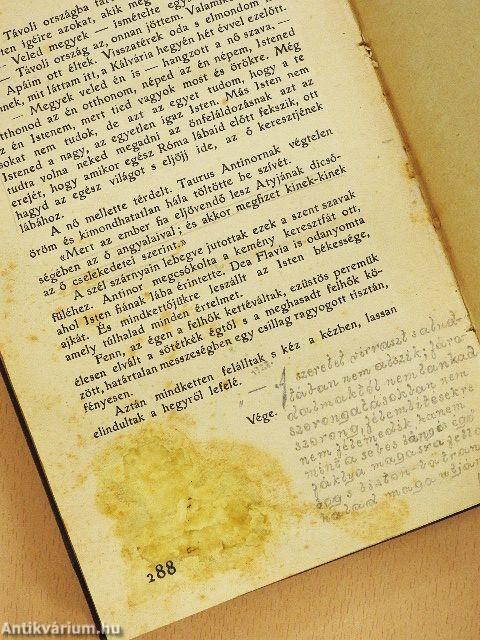 Távoli országba
ten igéire azokat, akik még
— Veled megyek — ismételte egy
— Távoli ország az, onnan jöttem. Valamikor
Apáim ott éltek. Visszatérek oda s elmondom
nek, mit láttam itt, a Kálvária hegyén hét évvel ezelőtt.
— Megyek veled én is — hangzott a nő szava. —
otthonod az én otthonom, néped az én népem, Istened
az én Istenem, mert tied vagyok most és örökre. Még
sokat nem tudok, de azt az egyet tudom, hogy a te
Istened a nagy, az egyetlen igaz Isten. Más Isten nem
tudta volna neked megadni az önfeláldozásnak azt az
erejét, hogy amikor egész Róma lábaid előtt fekszik, ott
hagyd az egész világot s eljöjj ide, az ő keresztjének
lábához.
A nő mellette térdelt. Taurus Antinornak végtelen
öröm és kimondhatatlan hála töltötte be szívét.
«Mert az ember fia eljövendő lesz Atyjának dicső-
ségében az ő angyalaival; és akkor megfizet kinek-kinek
az ő cselekedetei szerint.»
A szél szárnyain lebegve jutottak ezek a szent szavak
füléhez. Antinor megcsókolta a kemény keresztfát ott,
ahol Isten fiának lába érintette, Dea Flavia is odanyomta
ajkát. És mindkettőjükre leszállt az Isten békessége,
amely túlhalad minden értelmet.
Fenn, az égen a felhők kettéváltak, ezüstös peremük
élesen elvált a sötétkék égtől s a meghasadt felhők kö-
zött, határtalan messzeségben egy csillag ragyogott tisztán,
fényesen.
Aztán mindketten felálltak s kéz a kézben, lassan
elindultak a hegyről lefelé. —
Vége.
A szeretet virraszt s alud-
tában nem alszik; fára-
dalmaktól nem lankad
szorongatásokban nem
szorong, ijelmbitésekre
nem ijelmedik hanem
mint a sebes láng és égő
fáklya magasra
és biztonságban
halad maga
288
Antikvárium.hu